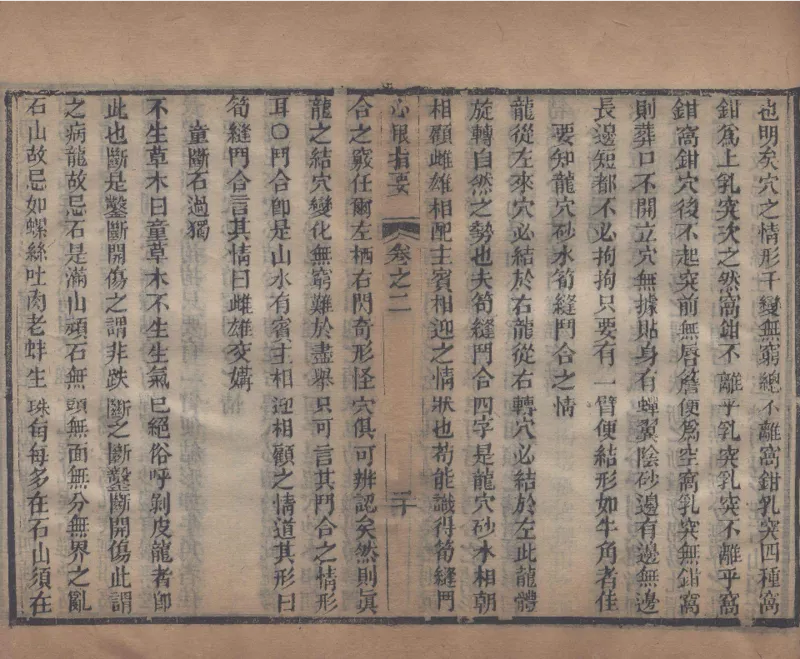 也明矣穴之情形千變無窮總不離窩鉗乳突四種窩
鉗爲上乳突次之然窩鉗不離乎乳突乳突不離乎窩
鉗窩鉗穴後不起突前無唇簷便爲空窩乳突無鉗窩
則葬口不開立穴無據貼身有蟬翼陰砂邊有邊無邊
長邊短都不必拘拘只要有一臂便結形如牛角者佳
要知龍穴砂水筍縫鬥合之情
龍從左來穴必結於右龍從右轉穴必結於左此龍體
旋轉自然之勢也夫筍縫鬥合四字是龍穴砂水相朝
相顧雌雄相配主賓相迎之情狀也苟能識得筍縫鬥
心眼指要
卷之二
二十
合之竅任爾左栖右閃奇形怪穴俱可辨認矣然則眞
龍之結穴變化無窮難於盡舉只可言其鬥合之情形
耳〇鬥合卽是山水有賓主相迎相顧之情道其形曰
筍縫鬥合言其情曰雌雄交媾
童斷石過獨
不生草木曰童草木不生生氣已絕俗呼剝皮龍者卽
此也斷是鑿斷開傷之謂非跌斷之斷鑿斷開傷此謂
之病龍故忌石是滿山頑石無頭無面無分無界之亂
石山故忌如螺絲吐肉老蚌生珠每每多在石山須在